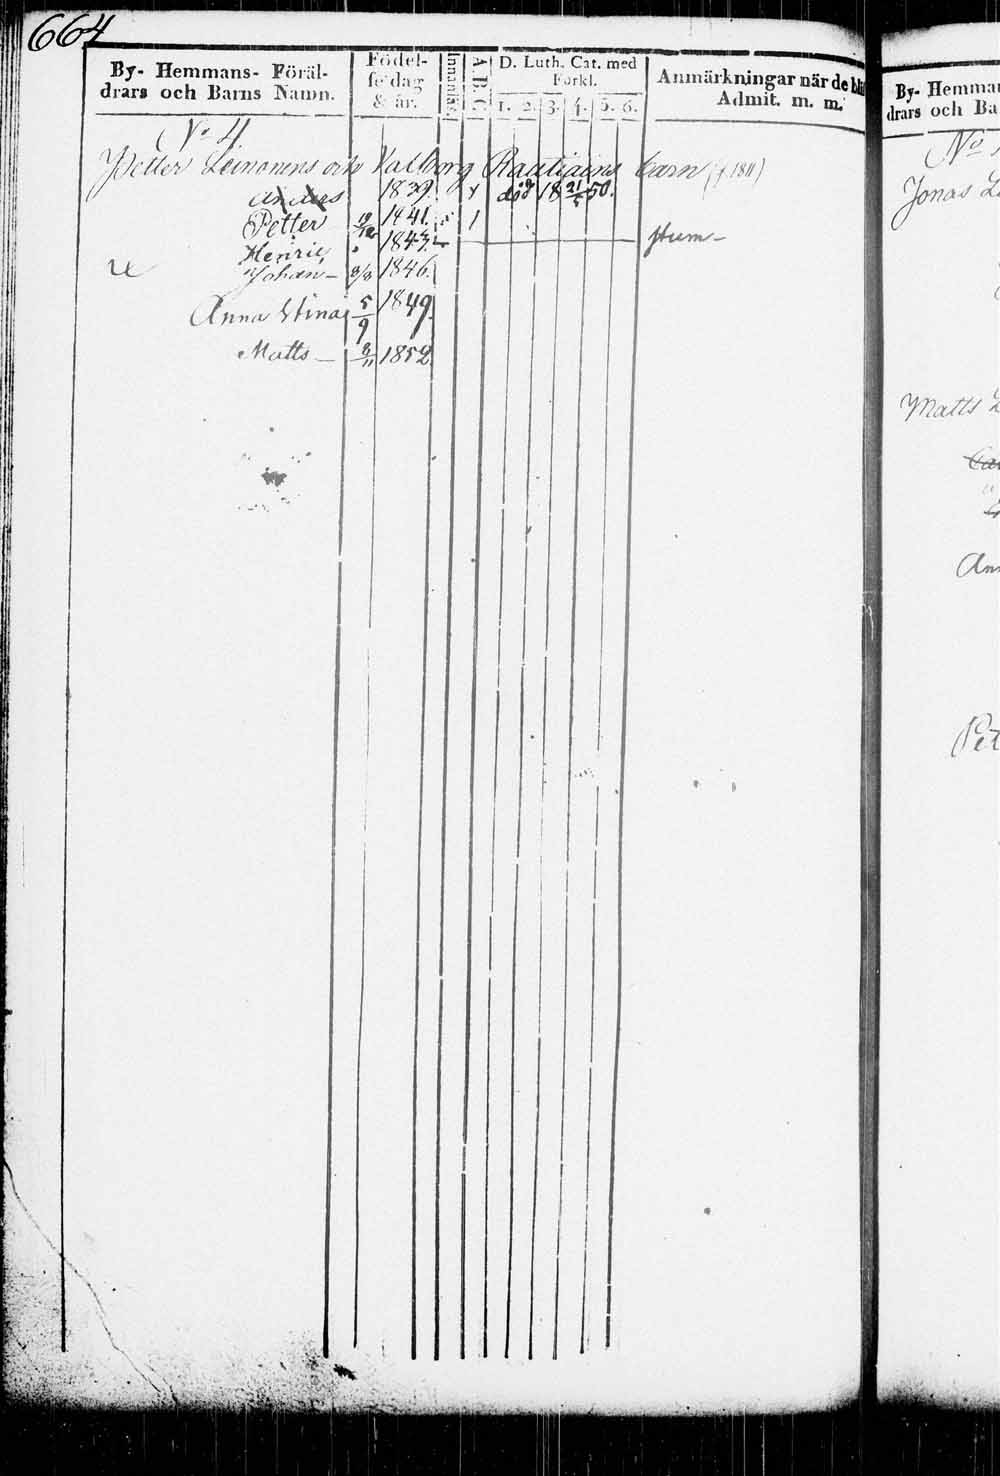 664
By- Hemmans- Föräl-
drars och Barns Namn.
Födel-
sedag
& år.
Innanläs.
A.B.C.
D. Luth. Cat. med
Förkl.
1. 2. 3. 4. 5. 6.
Anmärkningar när de
Admit. m. m.
No 4.
Petter Leinonens och Valborg Raatikains barn (f 1811)
Anders 1839. x död 18 21/5 50.
Petter 19/12 1841. 5 1
Henric, 1843. Stum
Johan 3/8 1846.
Anna Stina 5/9 1849.
Matts 3/11 1852.
By- Hemman
drars och Ba
No
Jonas
Matts
Ann
Pet